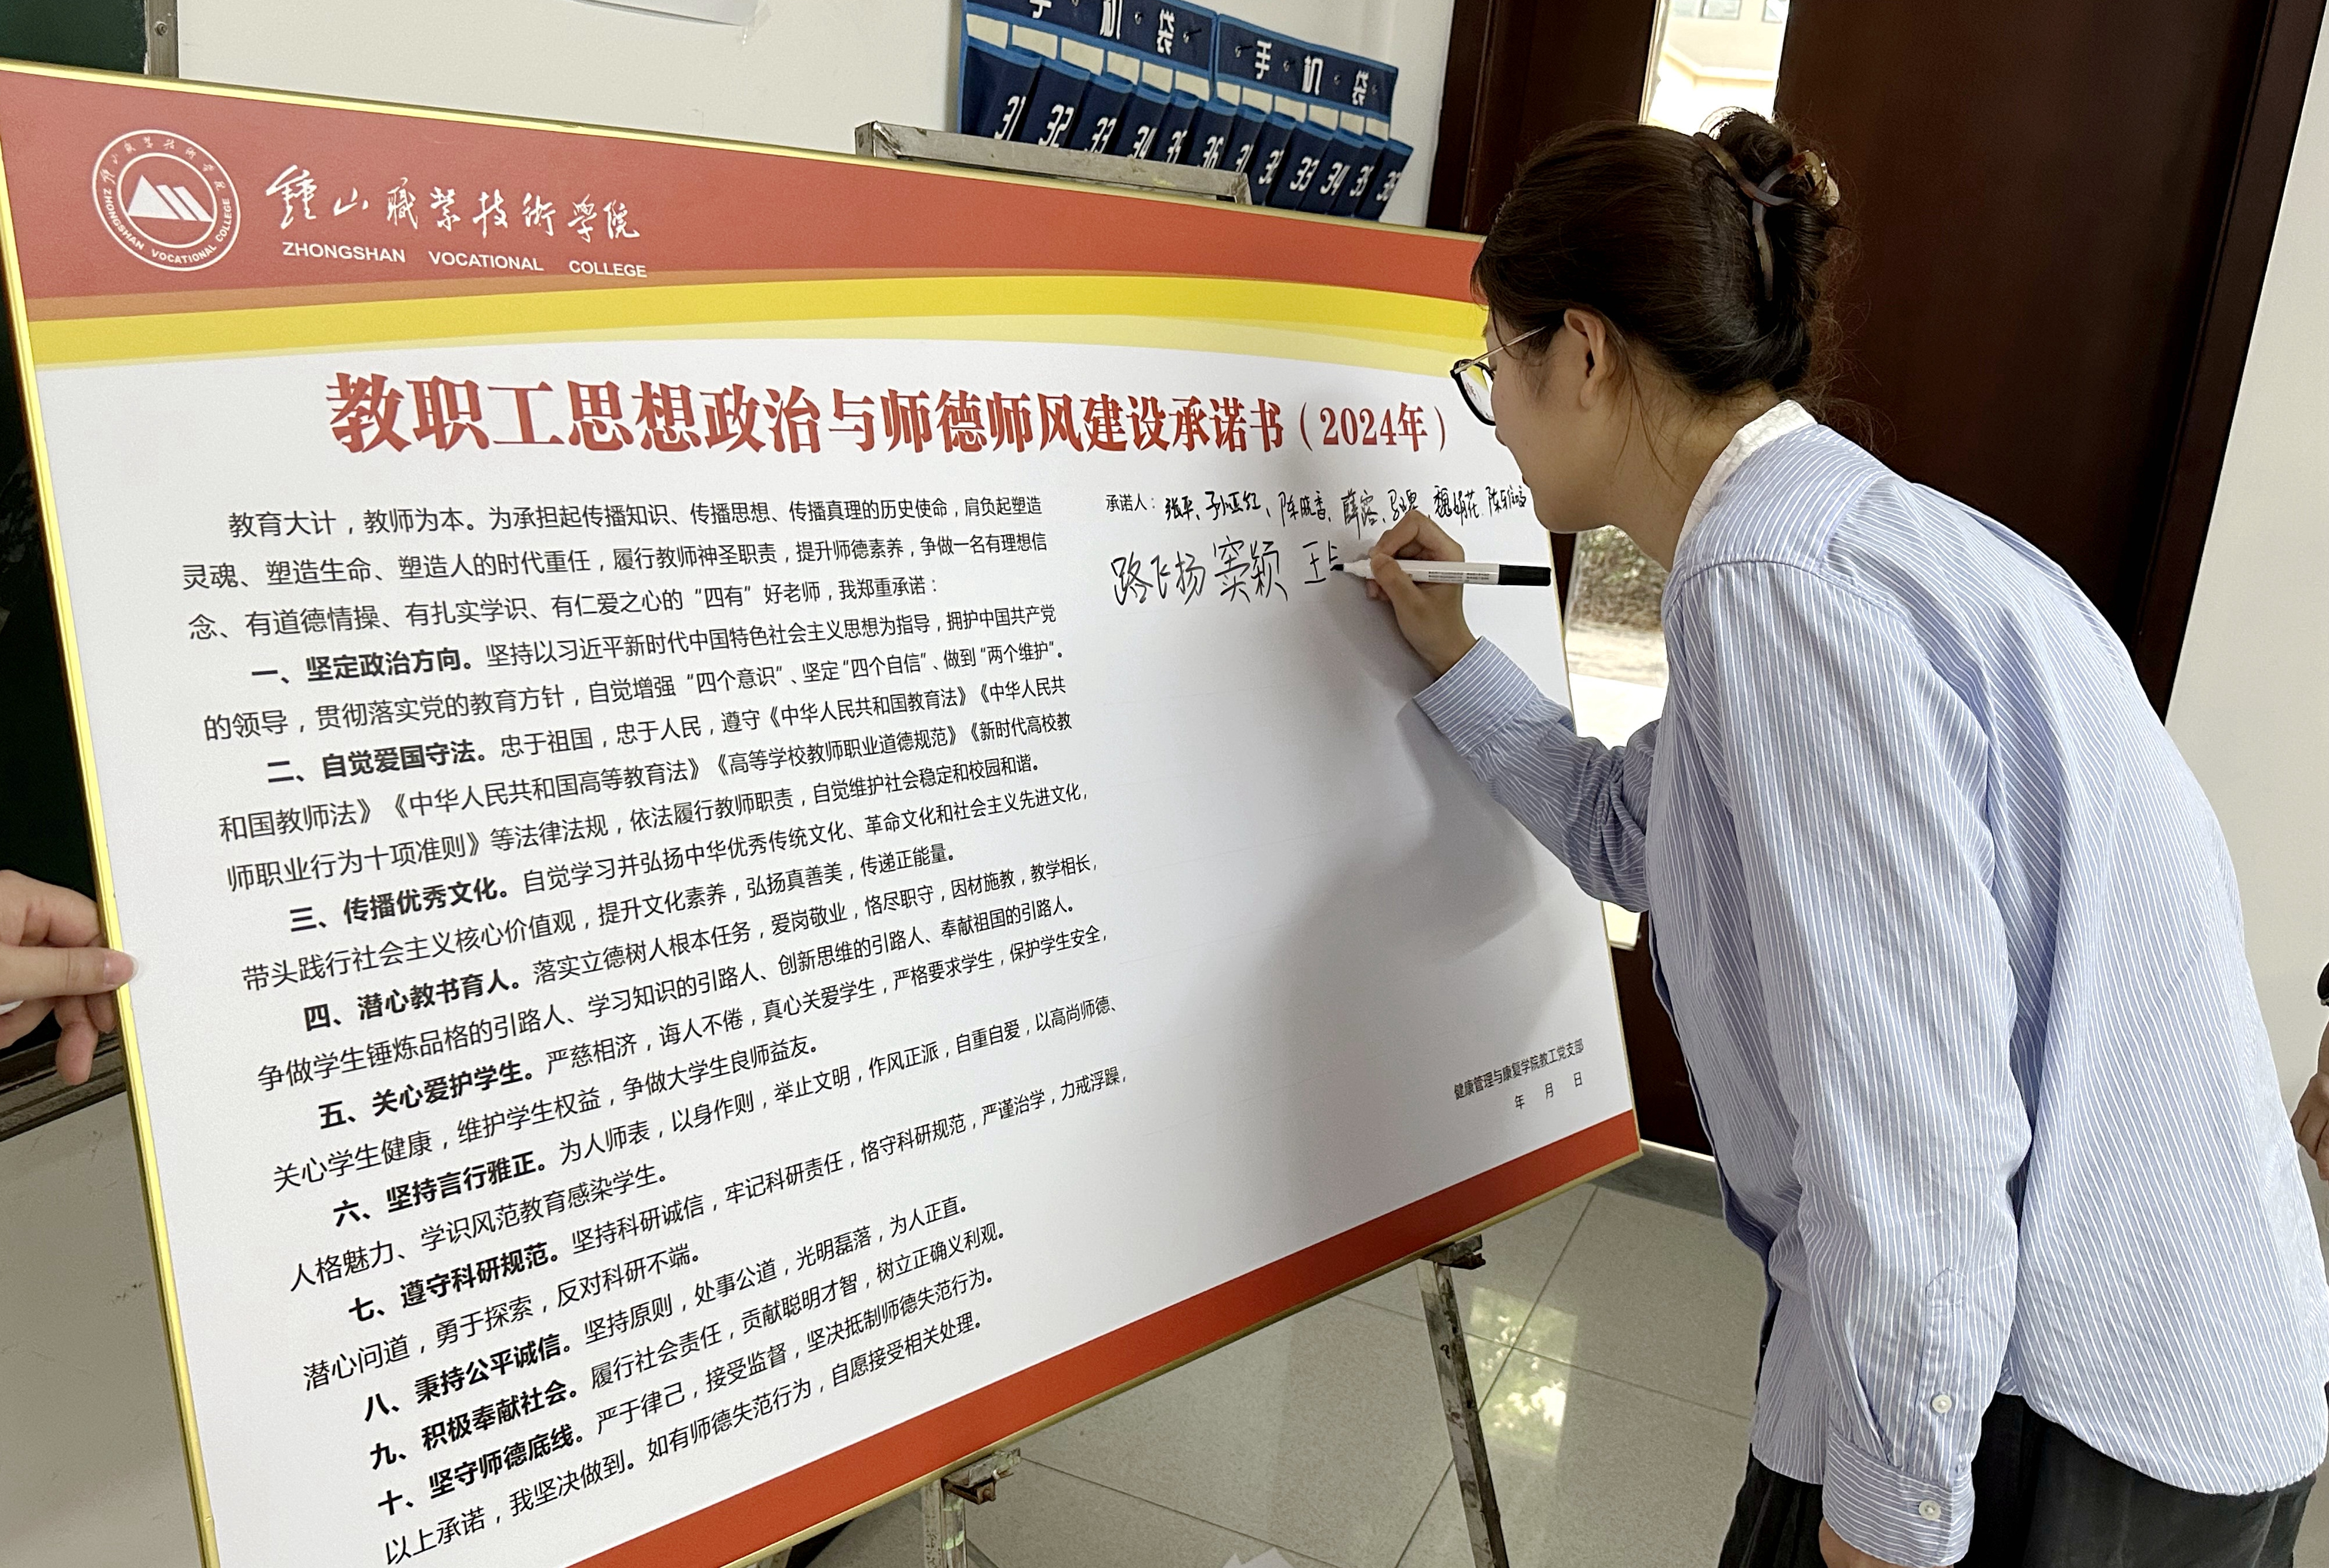 手机袋
手机袋
31 32 33 34 35 36
31 32 33 34 35 36
鍾山職業技術學院
ZHONGSHAN VOCATIONAL COLLEGE
鍾山職業技術學院
ZHONGSHAN VOCATIONAL COLLEGE
教职工思想政治与师德师风建设承诺书（2024年）
教育大计，教师为本。为承担起传播知识、传播思想、传播真理的历史使命，肩负起塑造
灵魂、塑造生命、塑造人的时代重任，履行教师神圣职责，提升师德素养，争做一名有理想信
念、有道德情操、有扎实学识、有仁爱之心的“四有”好老师，我郑重承诺：
一、坚定政治方向。坚持以习近平新时代中国特色社会主义思想为指导，拥护中国共产党
的领导，贯彻落实党的教育方针，自觉增强“四个意识”、坚定“四个自信”、做到“两个维护”。
二、自觉爱国守法。忠于祖国，忠于人民，遵守《中华人民共和国教育法》《中华人民共
和国教师法》《中华人民共和国高等教育法》《高等学校教师职业道德规范》《新时代高校教
师职业行为十项准则》等法律法规，依法履行教师职责，自觉维护社会稳定和校园和谐。
三、传播优秀文化。自觉学习并弘扬中华优秀传统文化、革命文化和社会主义先进文化，
带头践行社会主义核心价值观，提升文化素养，弘扬真善美，传递正能量。
四、潜心教书育人。落实立德树人根本任务，爱岗敬业，恪尽职守，因材施教，教学相长，
争做学生锤炼品格的引路人、学习知识的引路人、创新思维的引路人、奉献祖国的引路人。
五、关心爱护学生。严慈相济，诲人不倦，真心关爱学生，严格要求学生，保护学生安全，
关心学生健康，维护学生权益，争做大学生良师益友。
六、坚持言行雅正。为人师表，以身作则，举止文明，作风正派，自重自爱，以高尚师德、
人格魅力、学识风范教育感染学生。
七、遵守科研规范。坚持科研诚信，牢记科研责任，恪守科研规范，严谨治学，力戒浮躁，
潜心问道，勇于探索，反对科研不端。
八、秉持公平诚信。坚持原则，处事公道，光明磊落，为人正直。
九、积极奉献社会。履行社会责任，贡献聪明才智，树立正确义利观。
十、坚守师德底线。严于律己，接受监督，坚决抵制师德失范行为。
以上承诺，我坚决做到。如有师德失范行为，自愿接受相关处理。
承诺人：张平、孙亚红、陈晓香、薛容、
路飞扬 窦颖 王
健康管理与康复学院教工党支部
年 月 日